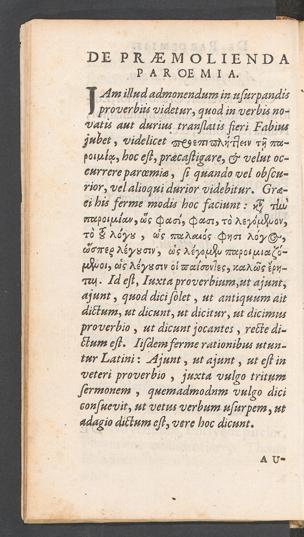 DE PRÆMOLIENDA
PAROEMIA.
JAm illud admonendum in usurpandis
proverbiis videtur, quod in verbis no-
vatis aut durius translatis fieri Fabius
jubet, videlicet προεπιπλήτλειν τῇ πα-
ροιμίᾳ, hoc est, præcastigare, & velut oc-
currere parœmiæ, si quando vel obscu-
rior, vel alioqui durior videbitur. Græ-
ci his ferme modis hoc faciunt: καὶ τὴν
παροιμίαν, ὥς φασι, φασι, τὸ λεγόμενον,
τὸ τοῦ λόγου, ὡς παλαιός φησι λόγος,
ὥσπερ λέγουσιν, ὡς λέγομεν παροιμιαζό-
μενοι, ὡς λέγουσιν οἱ παίζοντες, καλῶς ἔρη-
ται. Id est, Juxta proverbium, ut ajunt,
ajunt, quod dici solet, ut antiquum ait
dictum, ut dicunt, ut dicitur, ut dicimus
proverbio, ut dicunt jocantes, recte di-
ctum est. Iisdem ferme rationibus utun-
tur Latini: Ajunt, ut ajunt, ut est in
veteri proverbio, juxta vulgo tritum
sermonem, quemadmodum vulgo dici
consuevit, ut vetus verbum usurpem, ut
adagio dictum est, vere hoc dicunt.
AU-